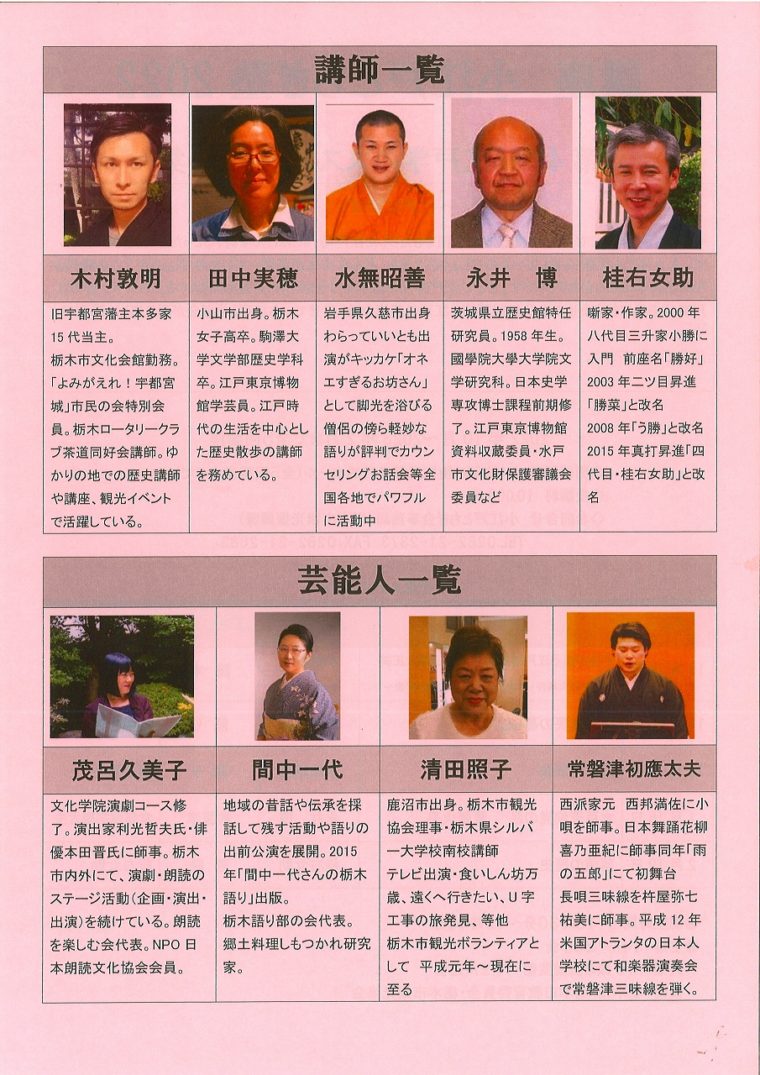 講師一覧
木村敦明
旧宇都宮藩主本多家
15代当主。
栃木市文化会館勤務。
「よみがえれ！宇都宮
城」市民の会特別会
員。栃木ロータリークラ
ブ茶道同好会講師。ゆ
かりの地での歴史講師
や講座、観光イベント
で活躍している。
田中実穂
小山市出身。栃木
女子高卒。駒澤大
学文学部歴史学科
卒。江戸東京博物
館学芸員。江戸時
代の生活を中心とし
た歴史散歩の講師
を務めている。
水無昭善
岩手県久慈市出身
わらっていいとも出
演がキッカケ「オネ
エすぎるお坊さん」
として脚光を浴びる
僧侶の傍ら軽妙な
語りが評判でカウン
セリングお話会等全
国各地でパワフル
に活動中
永井　博
茨城県立歴史館特任
研究員。1958年生。
國學院大學大学院文
学研究科。日本史学
専攻博士課程前期修
了。江戸東京博物館
資料収蔵委員・水戸
市文化財保護審議会
委員など
桂右女助
噺家・作家。2000年
八代目三升家小勝に
入門　前座名「勝好」
2003年二ツ目昇進
「勝菜」と改名
2008年「う勝」と改名
2015年真打昇進「四
代目・桂右女助」と改
名
芸能人一覧
茂呂久美子
文化学院演劇コース修
了。演出家利光哲夫氏・俳
優本田晋氏に師事。栃木
市内外にて、演劇・朗読の
ステージ活動（企画・演出・
出演）を続けている。朗読
を楽しむ会代表。NPO日
本朗読文化協会会員。
間中一代
地域の昔話や伝承を採
話して残す活動や語りの
出前公演を展開。2015
年「間中一代さんの栃木
語り」出版。
栃木語り部の会代表。
郷土料理しもつかれ研究
家。
清田照子
鹿沼市出身。栃木市観光
協会理事・栃木県シルバ
ー大学校南校講師
テレビ出演・食いしん坊万
歳、遠くへ行きたい、U字
工事の旅発見、等他
栃木市観光ボランティアと
して　平成元年～現在に
至る
常磐津初應太夫
西派家元　西邦満佐に小
唄を師事。日本舞踊花柳
喜乃亜紀に師事同年「雨
の五郎」にて初舞台
長唄三味線を杵屋弥七
祐美に師事。平成12年
米国アトランタの日本人
学校にて和楽器演奏会
で常磐津三味線を弾く。